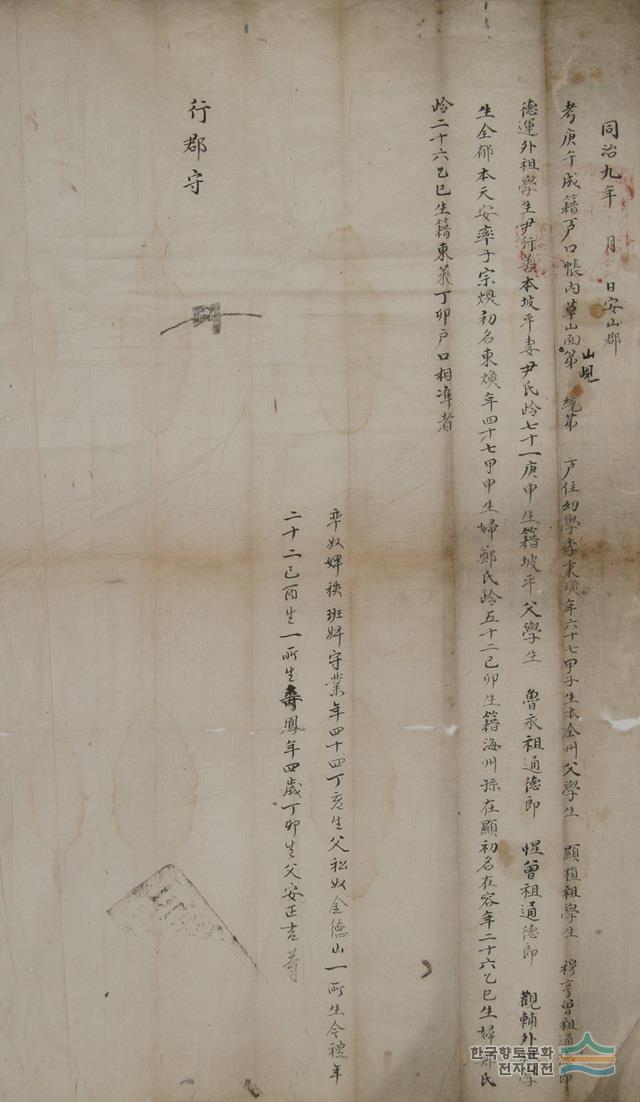 同治九年 月 日安山郡
考庚午成籍戶口帳內草山面第 統第 戶住幼學李東璜年六十七甲子生本全州父學生 顯植祖學生 穆亨曾祖通德郎
山峴
德運外祖學生尹行善本坡平妻尹氏齡七十一庚申生籍坡平父學生 魯永祖通德郎 惺曾祖通德郎 觀輔外祖學
生全郁本天安率子宗煥初名東煥年四十七甲申生婦鄭氏齡五十二己卯生籍海州孫在顯初名在容年二十六乙巳生婦鄭氏
齡二十六乙巳生籍東萊丁卯戶口相準者
率奴婢秩班婢守業年四十四丁亥生父私奴金德山一所生今禮年
二十二己酉生一所生壽鳳年四歲丁卯生父安正吉等
行郡守
한국향토문화
전자대전